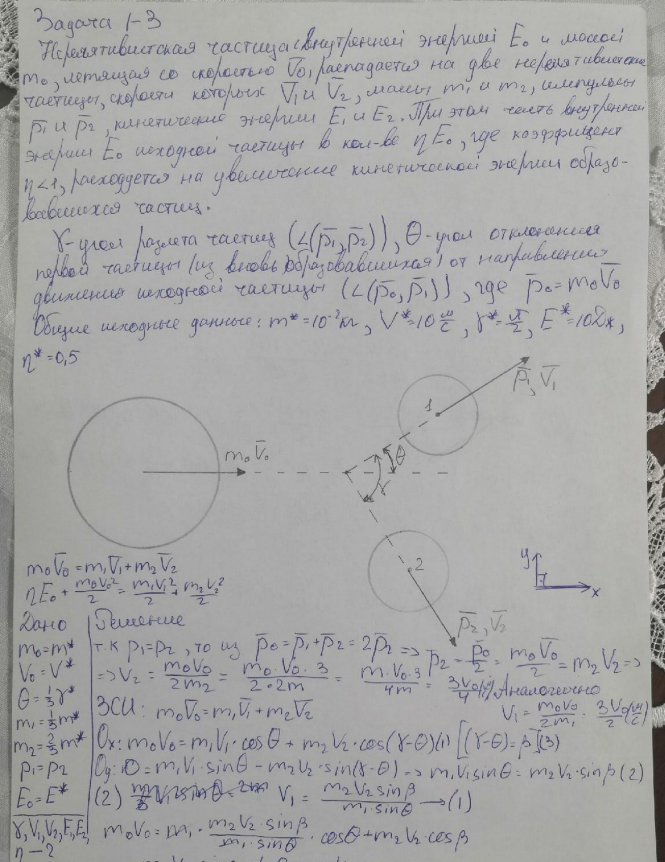 Задача 1-3
Нерелятивистская частица с внутренней энергией E₀ и массой
m₀, летящая со скоростью V̅₀, распадается на две нерелятивистские
частицы, скорости которых V̅₁ и V̅₂, массы m₁ и m₂, импульсы
p̅₁ и p̅₂, кинетические энергии E₁ и E₂. При этом часть внутренней
энергии E₀ исходной частицы в кол-ве ηE₀, где коэффициент
η<1, расходуется на увеличение кинетической энергии образо-
вавшихся частиц.
γ-угол разлета частиц (∠(p̅₁,p̅₂)), θ-угол отклонения
первой частицы (из вновь образовавшихся) от направления
движения исходной частицы (∠(p̅₀,p̅₁)), где p̅₀=m₀V̅₀
Общие исходные данные: m*=10⁻²кг, V*=10 м/с, γ*=π/2, E*=10Дж,
η*=0,5
p̅₁, V̅₁
1
m₀V̅₀
θ
γ
2
p̅₂, V̅₂
y
x
m₀V̅₀=m₁V̅₁+m₂V̅₂
ηE₀+m₀V₀²/2=m₁V₁²/2+m₂V₂²/2
Дано
m₀=m*
V₀=V*
θ=1/3γ*
m₁=1/3m*
m₂=2/3m*
p₁=p₂
E₀=E*
γ,V₁,V₂,E₁,E₂,
η-?
Решение
т.к p₁=p₂, то из p̅₀=p̅₁+p̅₂=2p̅₂ => p̅₂=p̅₀/2=m₀V̅₀/2=m₂V₂ =>
=> V₂=m₀V₀/2m₂=m₀·V₀·3/2·2m=m·V₀·3/4m=3V₀/4(м/с) Аналогично
V₁=m₀V₀/2m₁=3V₀/2(м/с)
ЗСИ: m₀V̅₀=m₁V̅₁+m₂V̅₂
Ox: m₀V₀=m₁V₁·cosθ+m₂V₂·cos(γ-θ)(1) [(γ-θ)=β](3)
Oy: 0=m₁V₁·sinθ-m₂V₂·sin(γ-θ) => m₁V₁sinθ=m₂V₂·sinβ(2)
(2) V₁=m₂V₂sinβ/m₁sinθ →(1)
m₀V₀=m₁·m₂V₂·sinβ/m₁·sinθ·cosθ+m₂V₂·cosβ